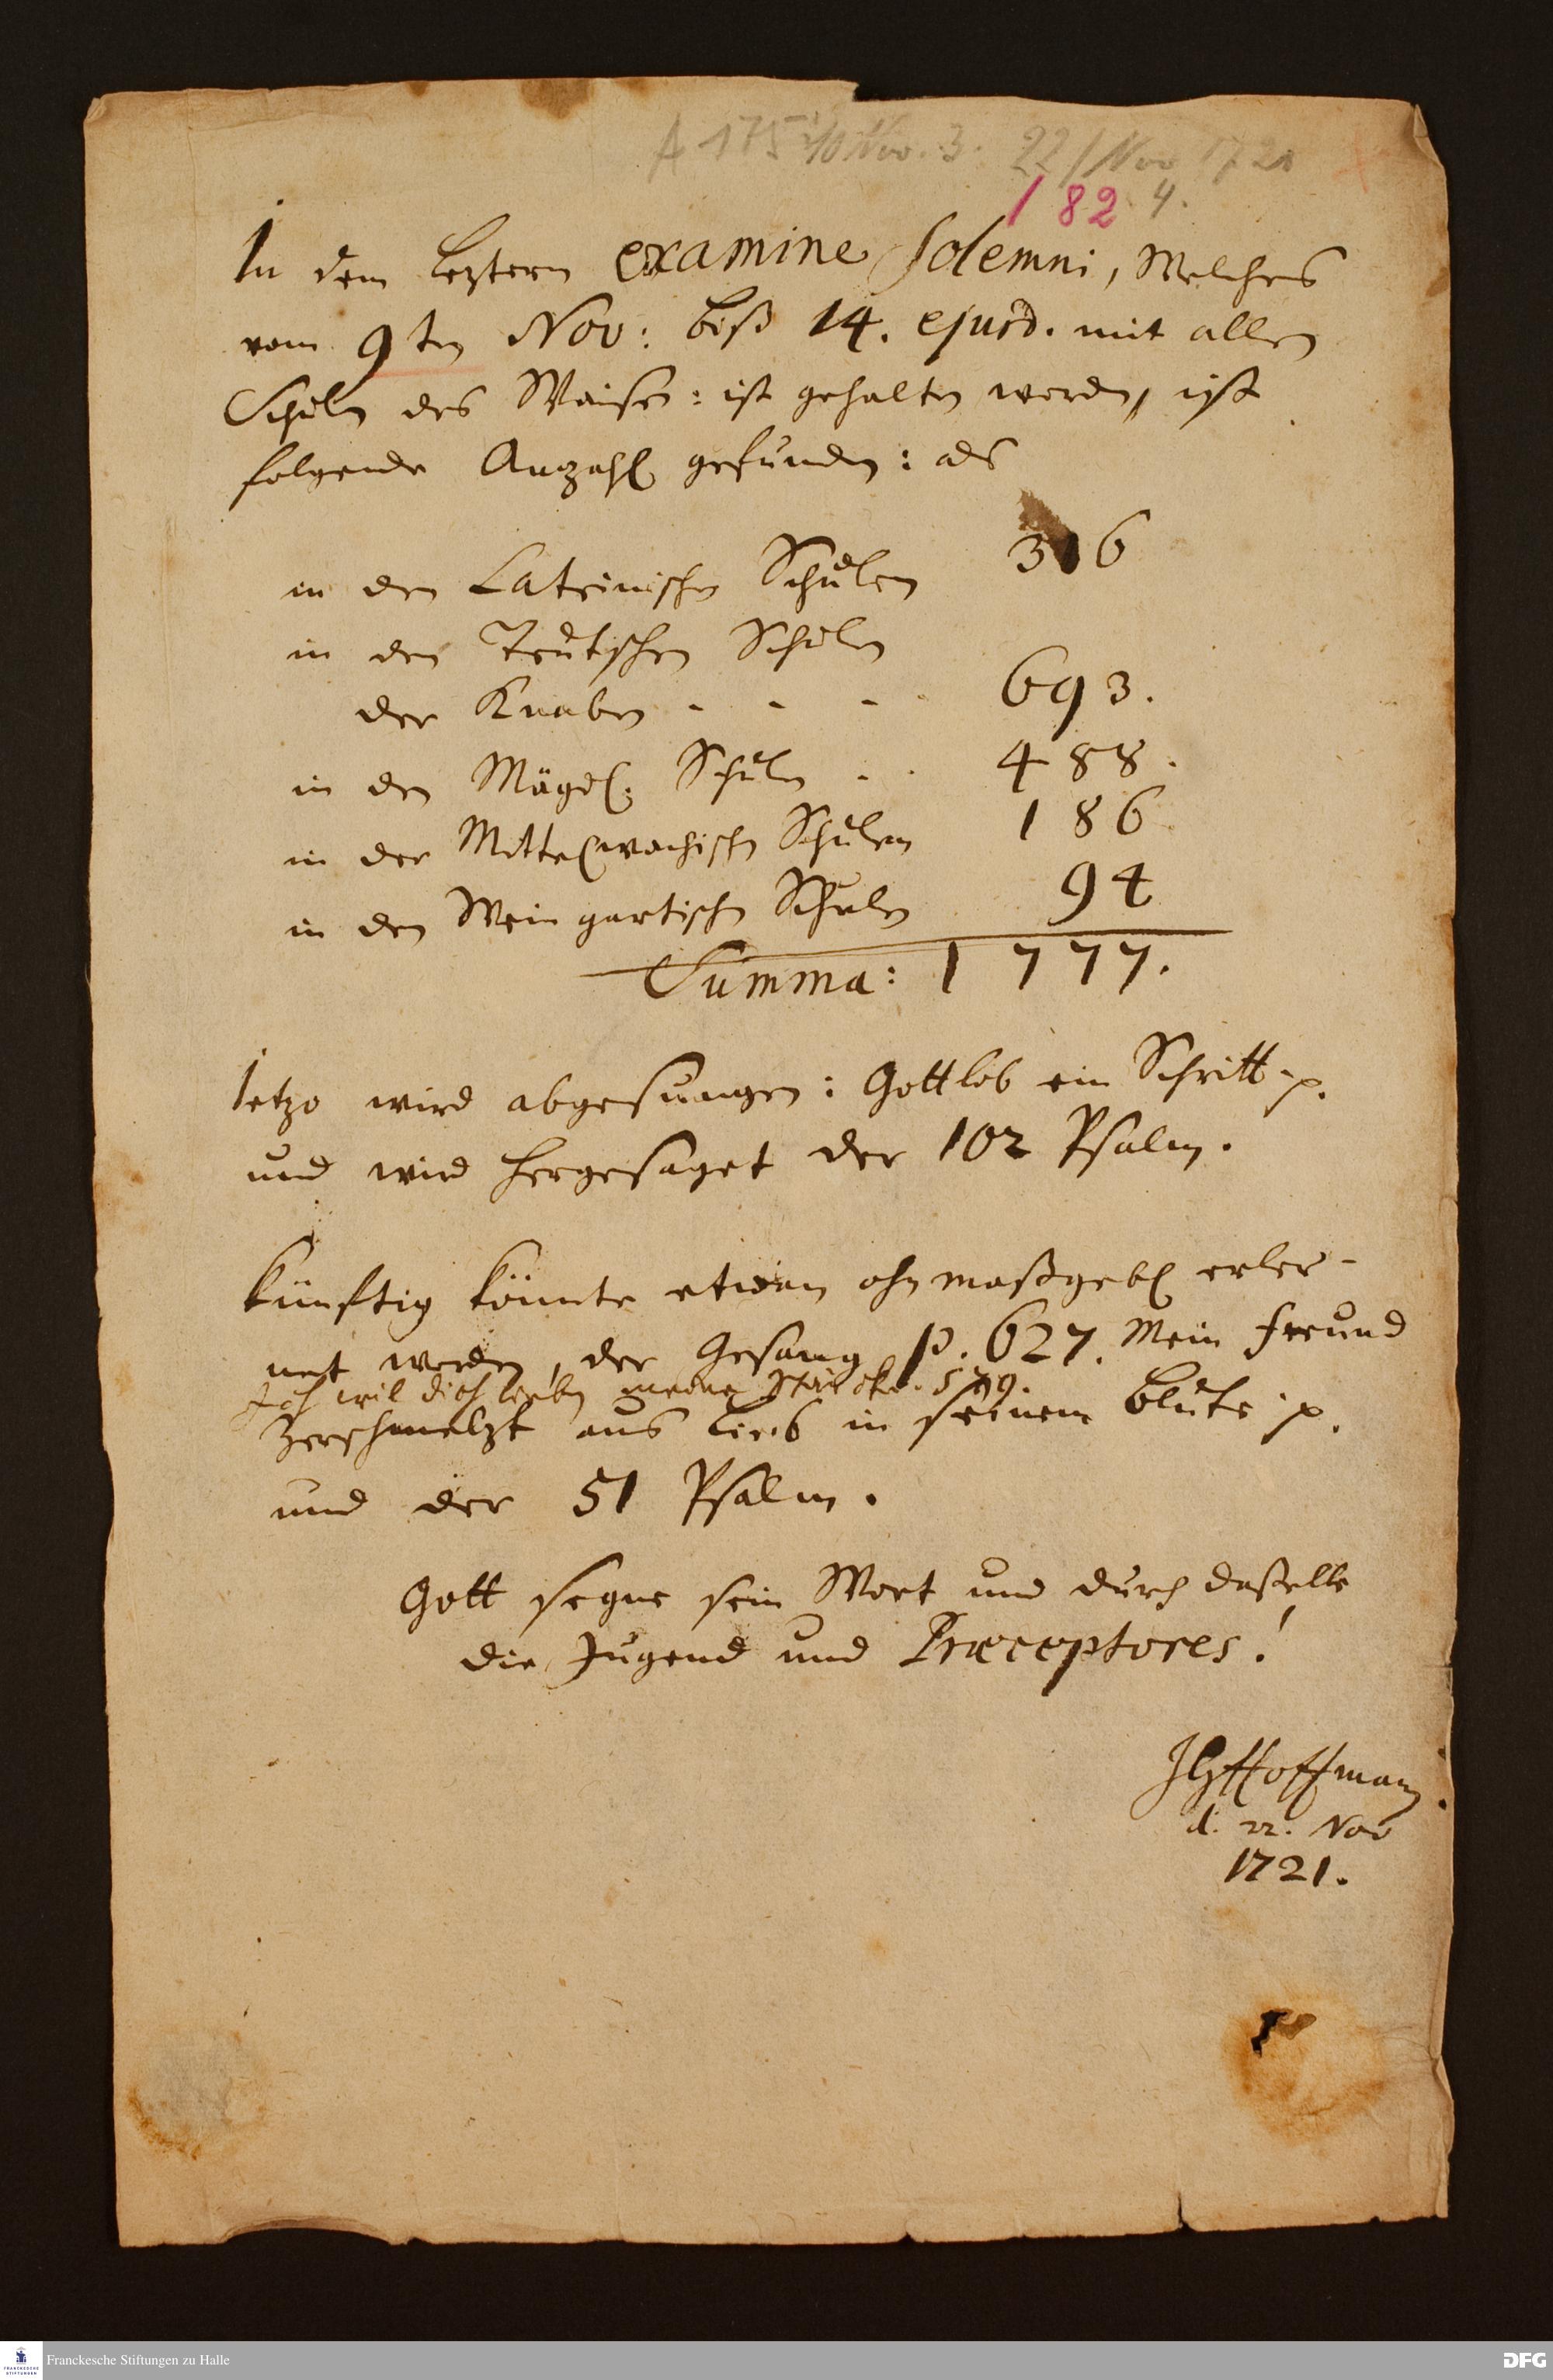 A 175 1/10 Nov. 3. 22/Nov 1721
182 4.
In dem letztern examine solemni, Welches
vom 9ten Nov: biß 14. ejusd. mit allen
Schuln des Waisen: ist gehalten worden, ist
folgende Anzahl gefunden: als
in den Lateinischen Schulen 316
in den Teutschen Schulen
der Knaben - - - 693.
in den Mägdl. Schuln - - 488.
in der Mittelwachischen Schulen 186
in den Weingartischen Schulen 94
Summa: 1777.
Ietzo wird abgesungen: Gottlob ein Schritt p.
und wird hergesaget der 102 Psalm.
Künftig könnte etwan ohnmaßgebl erler-
net werden, der Gesang p. 627. Mein Freund
Ich wil dich lieben meine Stärcke. 579.
Zerschmeltzt aus Lieb in seinem Blute p.
und der 51 Psalm.
Gott segne sein Wort und durch daßelbe
die Jugend und Præceptores!
JGHoffmann.
d. 22. Nov
1721.
Franckesche Stiftungen zu Halle
FRANCKESCHE
STIFTUNGEN
DFG